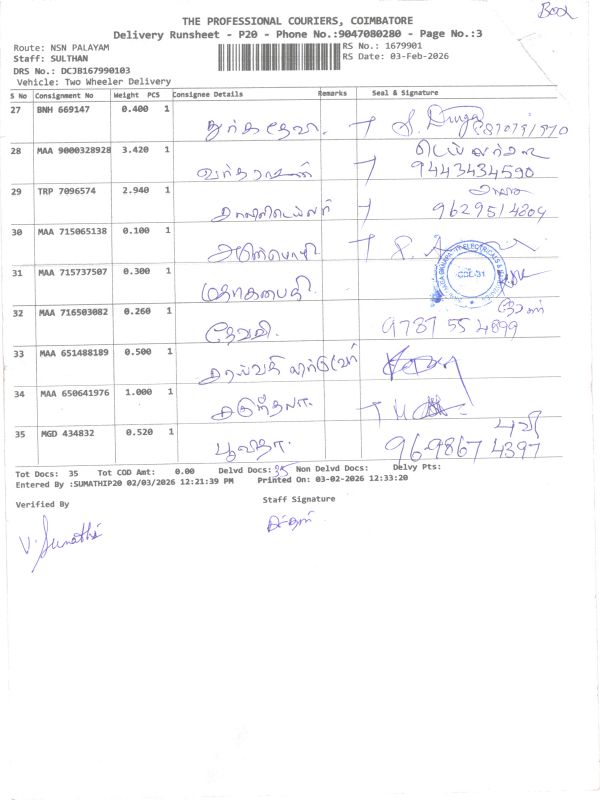 Book
THE PROFESSIONAL COURIERS, COIMBATORE
Delivery Runsheet - P20 - Phone No.:9047080280 - Page No.:3
Route: NSN PALAYAM RS No.: 1679901
Staff: SULTHAN RS Date: 03-Feb-2026
DRS No.: DCJB167990103
Vehicle: Two Wheeler Delivery
S No Consignment No Weight PCS Consignee Details Remarks Seal & Signature
27 BNH 669147 0.400 1 துர்கதேவி
28 MAA 9000328928 3.420 1 வர்தராஜன் 9443434590
29 TRP 7096574 2.940 1 9629514204
30 MAA 715065138 0.100 1 அன்பொழி
31 MAA 715737507 0.300 1 CBE-31
32 MAA 716503082 0.260 1 தேவகி 9787 55 4899
33 MAA 651488189 0.500 1
34 MAA 650641976 1.000 1
35 MGD 434832 0.520 1 பூவிதா. 96-9867 4397
Tot Docs: 35 Tot COD Amt: 0.00 Delvd Docs: 35 Non Delvd Docs: Delvy Pts:
Entered By :SUMATHIP20 02/03/2026 12:21:39 PM Printed On: 03-02-2026 12:33:20
Verified By Staff Signature
V. Sumathi